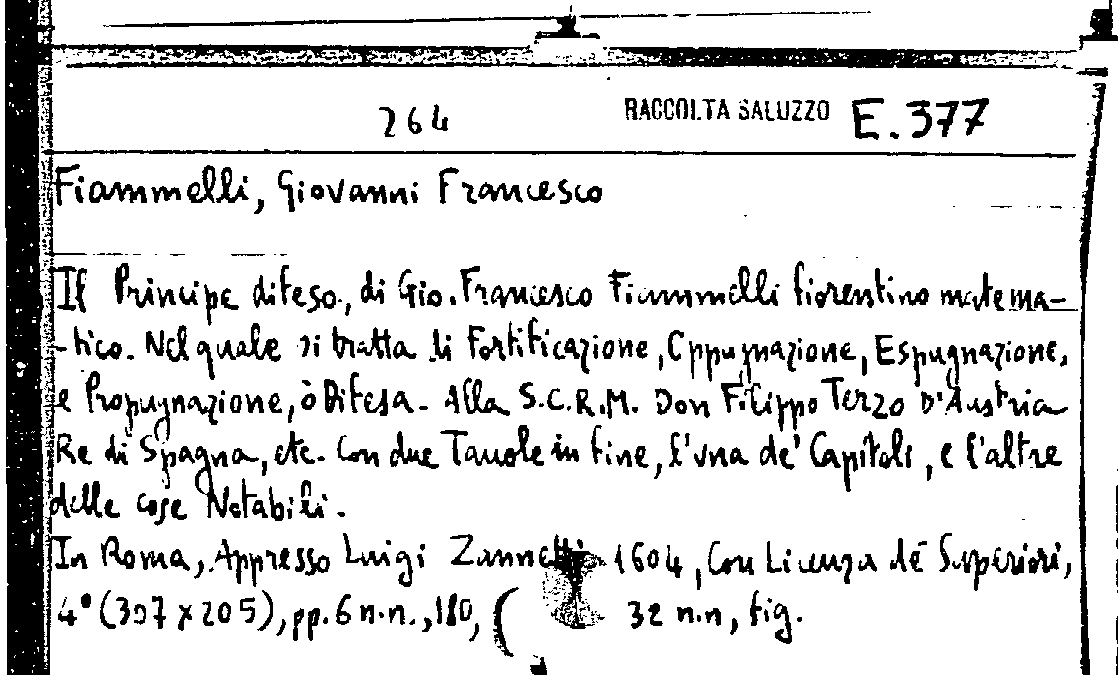 264 RACCOLTA SALUZZO E.377
Fiammelli, Giovanni Francesco
Il Principe difeso, di Gio. Francesco Fiammelli fiorentino matema-
-tico. Nel quale si tratta di Fortificazione, Oppugnazione, Espugnazione,
e Propugnazione, ò Difesa. Alla S.C.R.M. Don Filippo Terzo D'Austria
Re di Spagna, etc. Con due Tauole in fine, l'vna de' Capitoli, e l'altre
delle cose Notabili.
In Roma, Appresso Luigi Zannetti 1604, Con Licenza de' Superiori,
4° (307 x 205), pp. 6 n.n., 180, ( 32 n.n, fig.